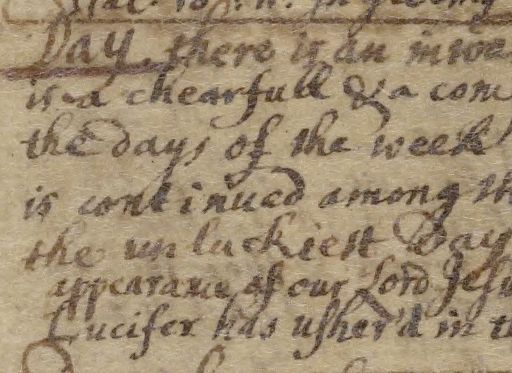 Day, there is an inwa
is a chearfull & a com
the days of the week
is continued among th
the unluckiest Day
appearance of our Lord Jesu
Lucifer has usher'd in th